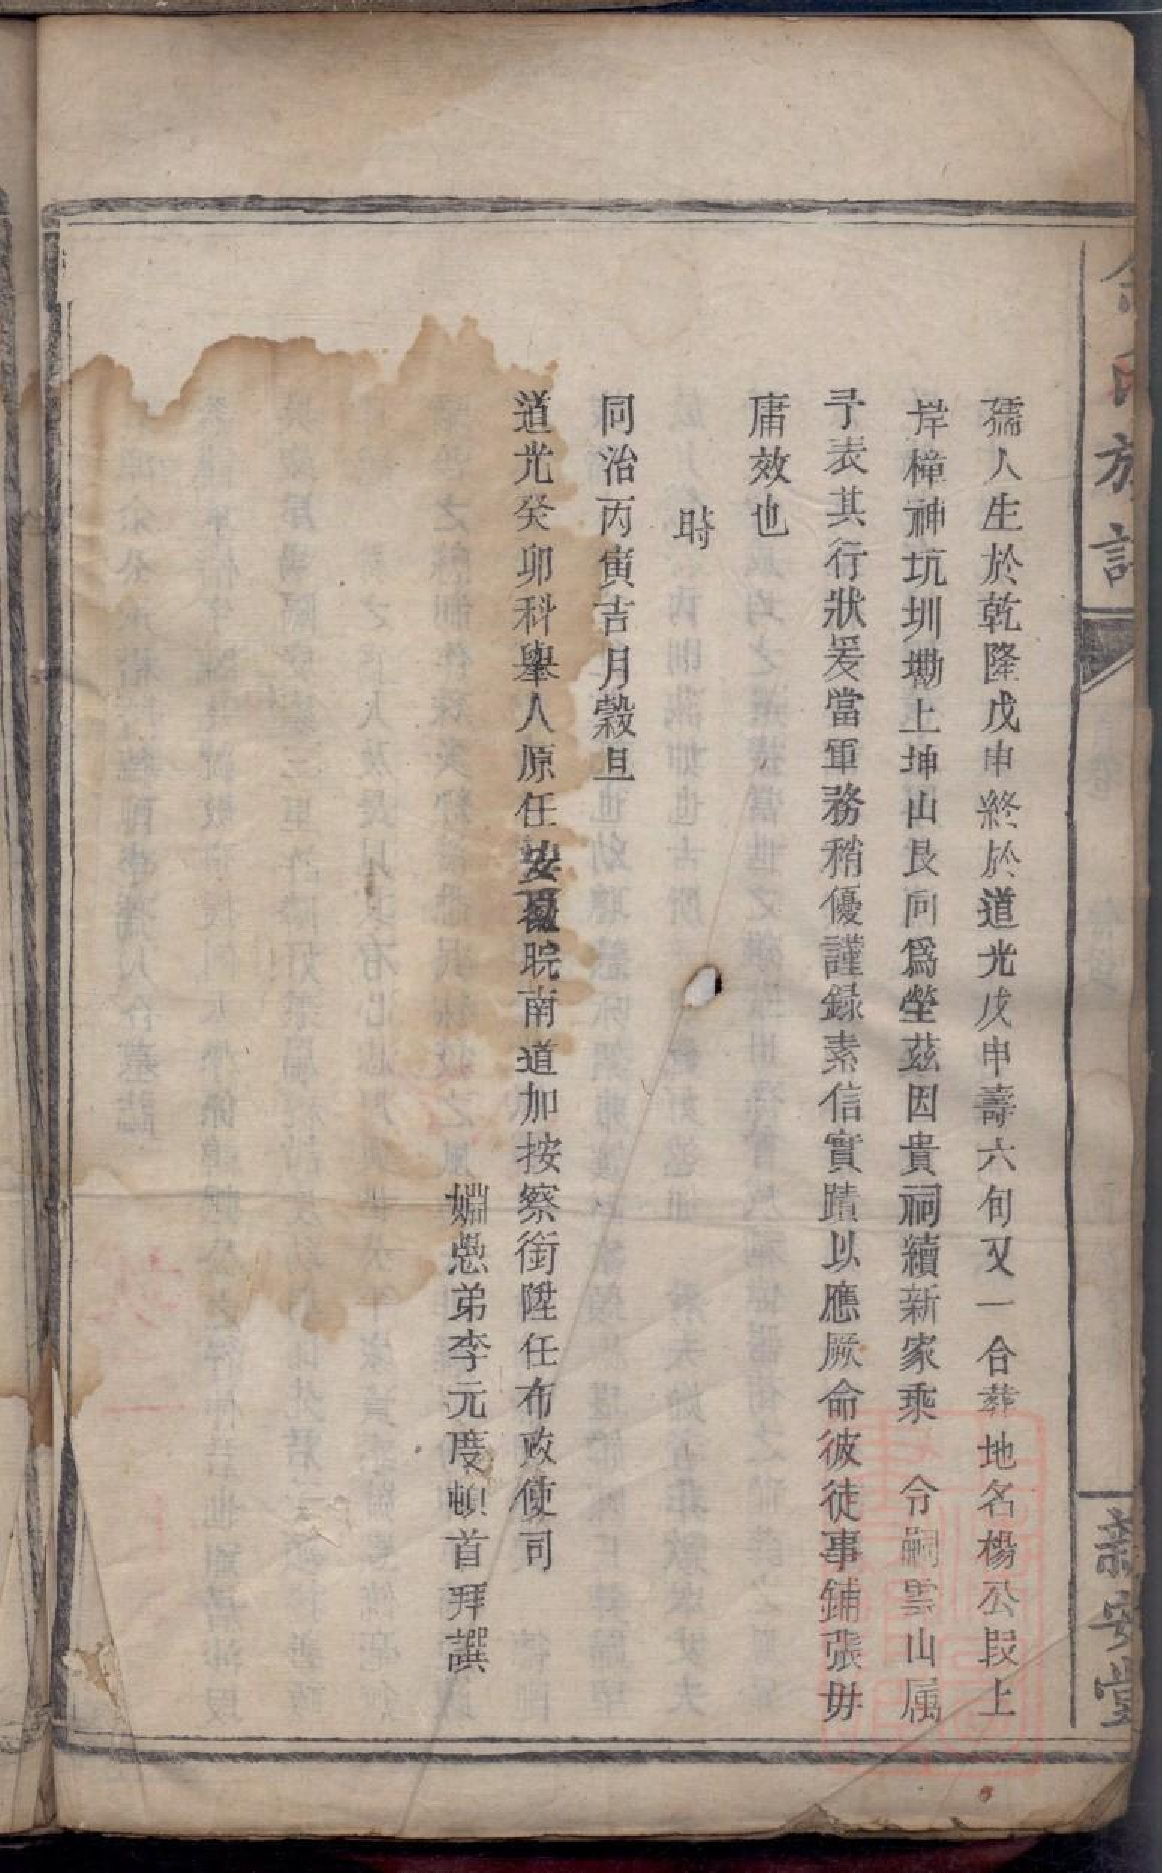 孺人生於乾隆戊申終於道光戊申壽六旬又一合葬地名楊公段上
岸樟神坑圳墈上坤山艮向爲塋茲因貴祠續新家乘 令嗣雲山属
予表其行狀爰當軍務稍優謹録素信實蹟以應厥命彼徒事鋪張毋
庸效也
時
同治丙寅吉月穀旦
道光癸卯科舉人原任安徽皖南道加按察銜陞任布政使司
姻愚弟李元度頓首拜譔
氏族譜
新安堂